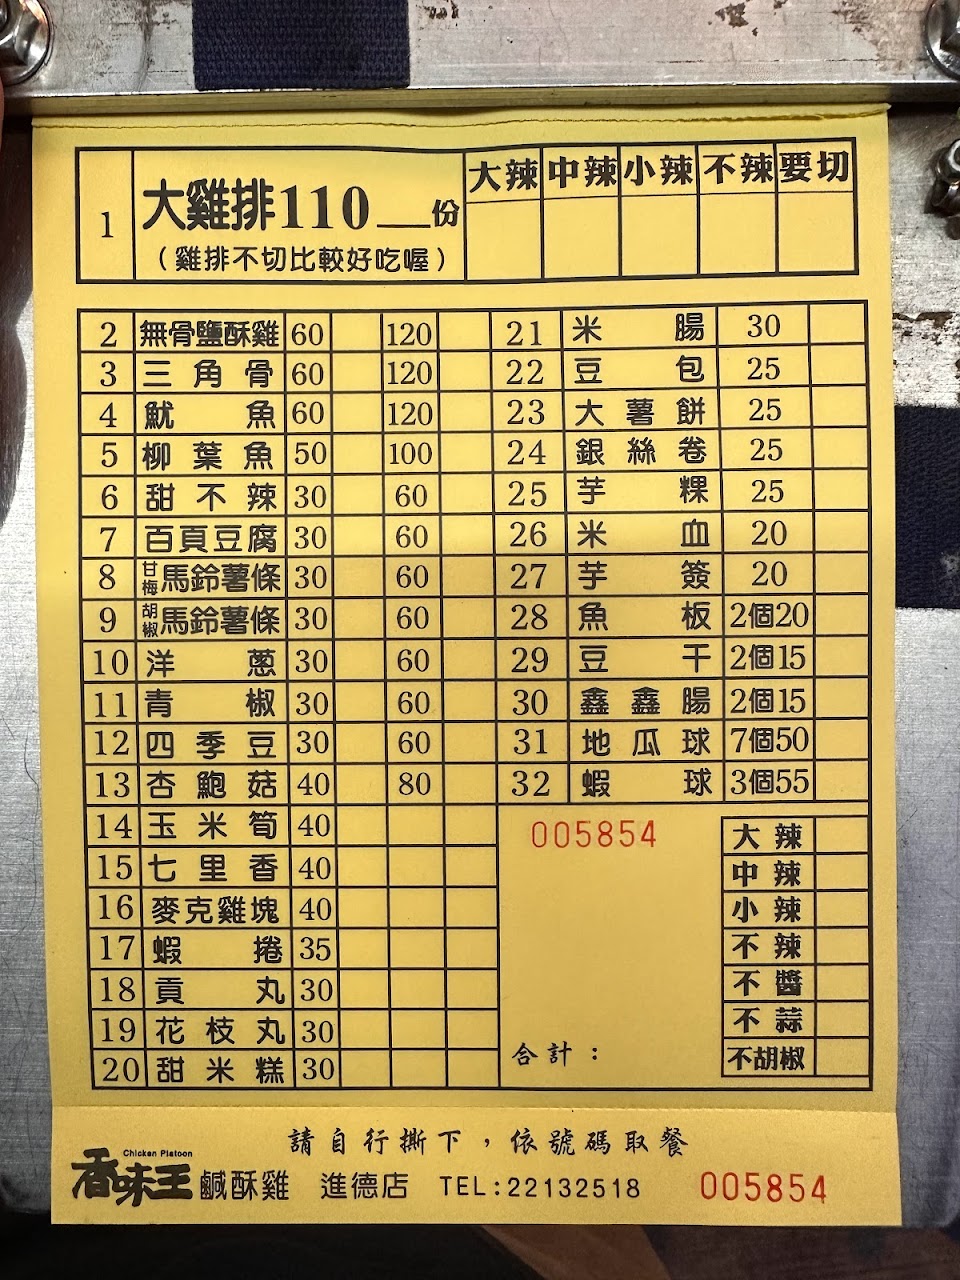 1 大雞排110__份 大辣 中辣 小辣 不辣 要切
(雞排不切比較好吃喔)
2 無骨鹽酥雞 60 120
3 三角骨 60 120
4 魷魚 60 120
5 柳葉魚 50 100
6 甜不辣 30 60
7 百頁豆腐 30 60
8 甘梅馬鈴薯條 30 60
9 胡椒馬鈴薯條 30 60
10 洋蔥 30 60
11 青椒 30 60
12 四季豆 30 60
13 杏鮑菇 40 80
14 玉米筍 40
15 七里香 40
16 麥克雞塊 40
17 蝦捲 35
18 貢丸 30
19 花枝丸 30
20 甜米糕 30
21 米腸 30
22 豆包 25
23 大薯餅 25
24 銀絲卷 25
25 芋粿 25
26 米血 20
27 芋簽 20
28 魚板 2個20
29 豆干 2個15
30 鑫鑫腸 2個15
31 地瓜球 7個50
32 蝦球 3個55
005854
合計：
大辣
中辣
小辣
不辣
不醬
不蒜
不胡椒
請自行撕下，依號碼取餐
Chicken Platoon
香味王鹹酥雞 進德店 TEL:22132518 005854